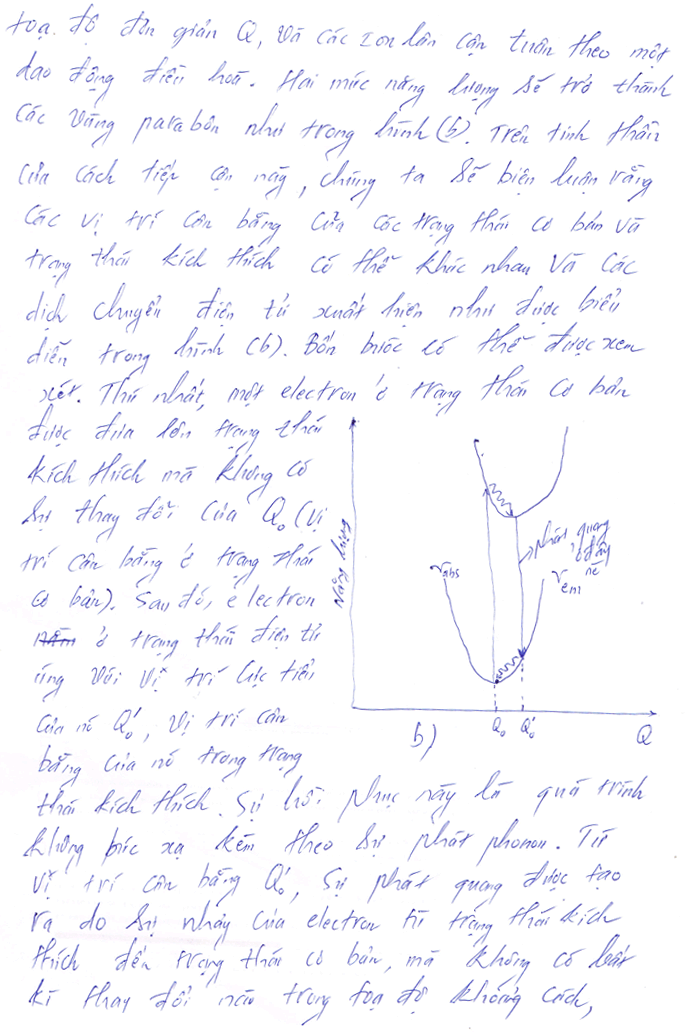 toạ độ đơn giản Q, và các ion lân cận tuân theo một
dao động điều hoà. Hai mức năng lượng sẽ trở thành
các vùng parabôn như trong hình (b). Trên tinh thần
của cách tiếp cận này, chúng ta sẽ biện luận rằng
các vị trí cân bằng của các trạng thái cơ bản và
trạng thái kích thích có thể khác nhau và các
dịch chuyển điện tử xuất hiện như được biểu
diễn trong hình (b). Bốn bước có thể được xem
xét. Thứ nhất, một electron ở trạng thái cơ bản
được đưa lên trạng thái
kích thích mà không có
sự thay đổi của Q₀ (vị
trí cân bằng ở trạng thái
cơ bản). Sau đó, electron
ở trạng thái điện tử
ứng với vị trí cực tiểu
của nó Q₀', vị trí cân
bằng của nó trong trạng
thái kích thích. Sự hồi phục này là quá trình
không bức xạ kèm theo sự phát phonon. Từ
vị trí cân bằng Q₀', sự phát quang được tạo
ra do sự nhảy của electron từ trạng thái kích
thích đến trạng thái cơ bản, mà không có bất
kì thay đổi nào trong toạ độ khoảng cách,
Năng lượng
νabs
phát quang
ở đây
nè
νem
Q₀
Q₀'
Q
b)